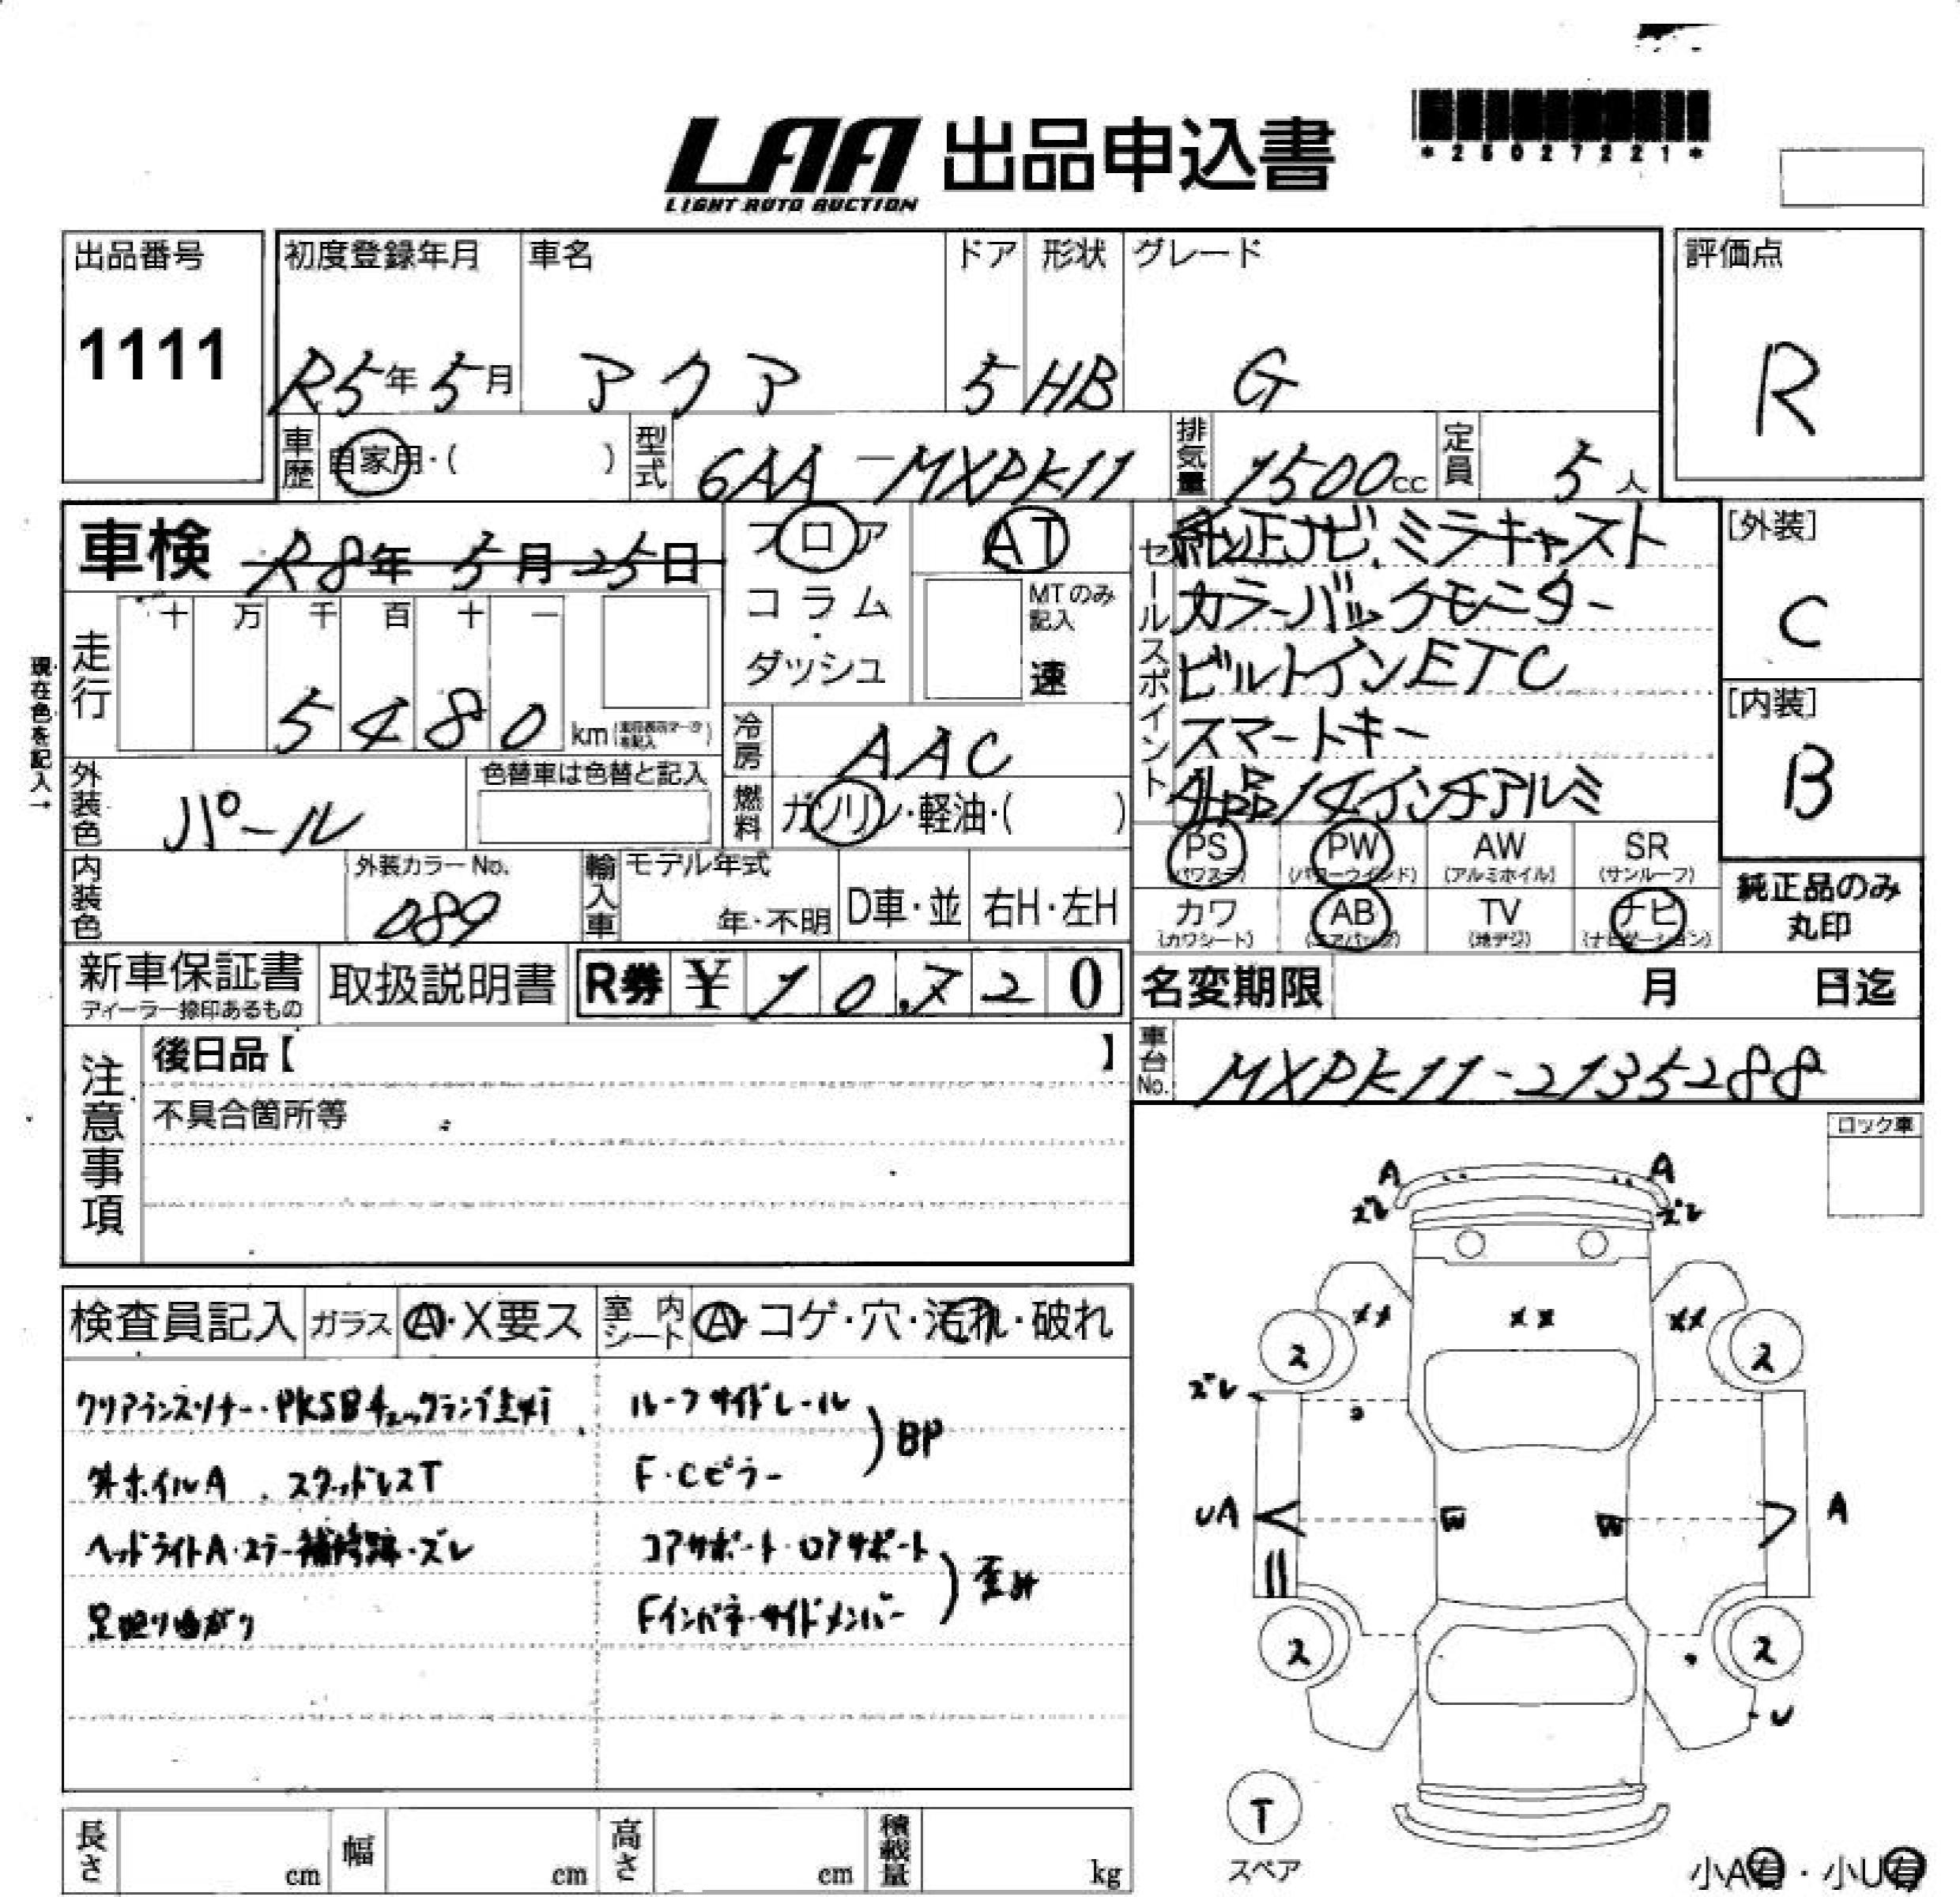 *25027221*
LAA 出品申込書
LIGHT AUTO AUCTION
出品番号
1111
初度登録年月
R5年5月
車名
アクア
ドア
5
形状
HB
グレード
G
評価点
R
車歴
自家用・( )
型式
6AA-MXPK11
排気量
1500cc
定員
5人
車検
R8年5月25日
フロア
コラム
・
ダッシュ
AT
MTのみ
記入
速
セールスポイント
純正ナビ、ミラキャスト
カラーバックモニター
ビルトインETC
スマートキー
外品14インチアルミ
[外装]
C
[内装]
B
現在色を記入→
走行
十 万 千 百 十 一
5480
km
冷房
AAC
外装色
パール
色替車は色替と記入
燃料
ガソリン・軽油・( )
PS
(パワステ)
PW
(パワーウインド)
AW
(アルミホイル)
SR
(サンルーフ)
カワ
(カワシート)
AB
(エアバッグ)
TV
(地デジ)
ナビ
(ナビゲーション)
純正品のみ
丸印
内装色
外装カラーNo.
089
輸入車
モデル年式
年・不明
D車・並
右H・左H
新車保証書
ディーラー捺印あるもの
取扱説明書
R券 ¥10,720
名変期限
月 日迄
車台No.
MXPK11-2135288
注意事項
後日品【 】
不具合箇所等
ロック車
検査員記入
ガラス
A・X要ス
室内シート
A・コゲ・穴・汚れ・破れ
クリアランスソナー・PKSBチェックランプ点灯
外ホイルA . スタッドレスT
ヘッドライトA・ステー補修跡・ズレ
足廻り曲がり
ルーフサイドレール
F・Cピラー
BP
コアサポート・ロアサポート
Fインパネ・サイドメンバー
歪み
A A
ズレ ズレ
×× ×× ××
2 2
ズレ
UA A
W W
2 2
U
T
スペア
小A有・小U有
長さ
cm
幅
cm
高さ
cm
積載量
kg